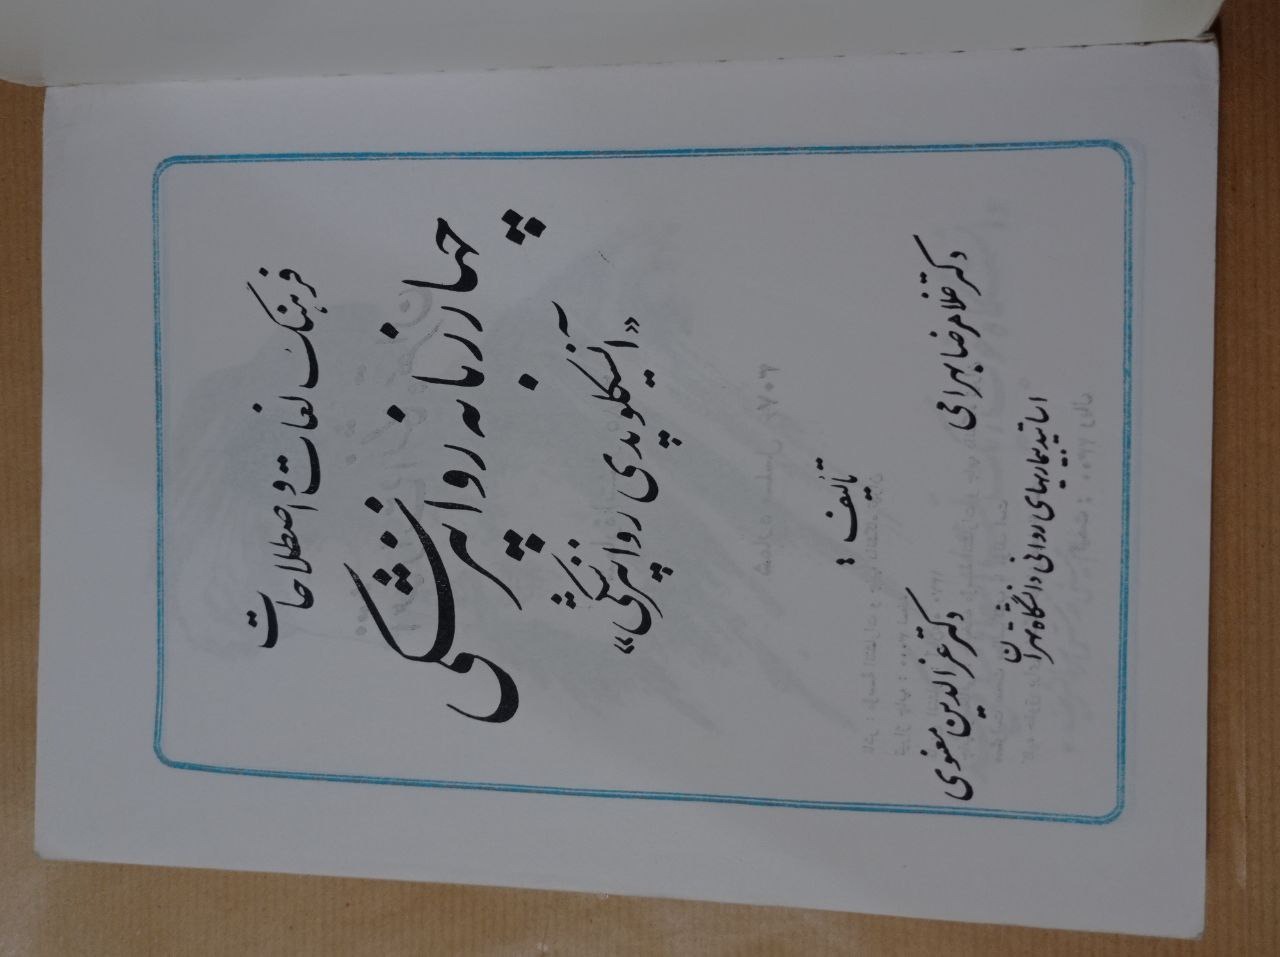 فرهنگ لغات و اصطلاحات
چهار زبانه روانپزشکی
«آنسیکلوپدی روانپزشکی»
تألیف :
دکتر غلامرضا بهرامی
دکتر عزالدین معنوی
اساتید بیماریهای روانی دانشگاه تهران